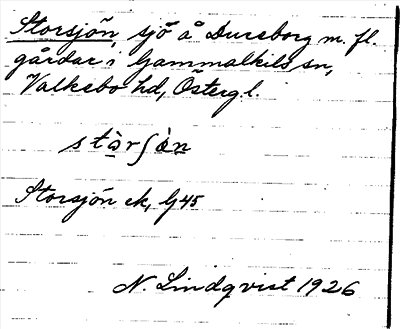 Storsjön, sjö å Dureborg m. fl.
gårdar i Gammalkils sn,
Valkebo hd, Östergl.
Storsjön ek, G45
N. Lindqvist 1926